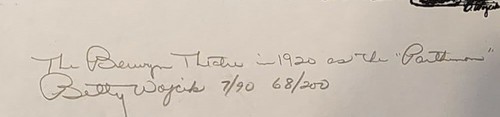 The Berwyn Theatre in 1920 as the "Parthenon"
Betty Wojcik 7/90 68/200